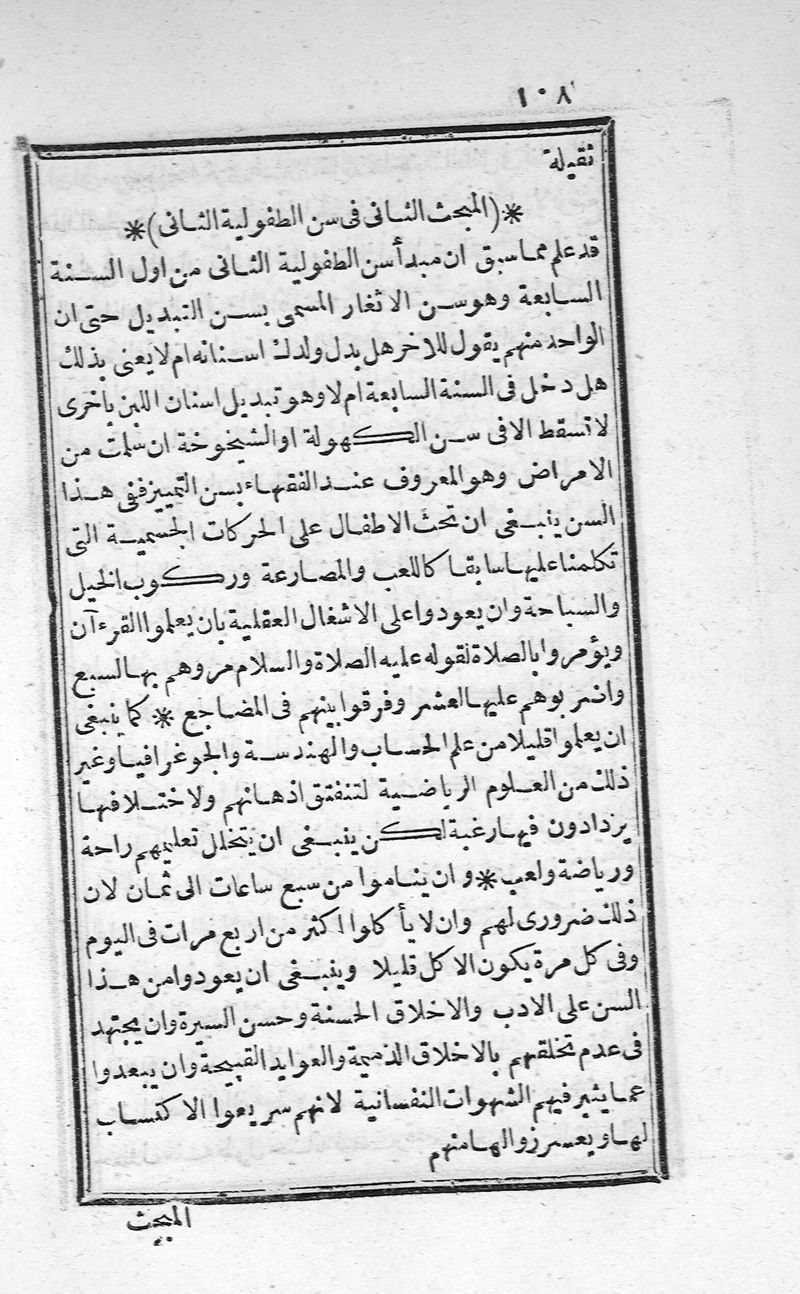 ١٠٨
ثقيلة
*(المبحث الثانى فى سن الطفولية الثانى)*
قد علم مما سبق ان مبدأ سن الطفولية الثانى من اول السنة
السابعة وهو سن الاثغار المسمى بسن التبديل حتى ان
الواحد منهم يقول للاخر هل بدل ولدك اسنانه ام لا يعنى بذلك
هل دخل فى السنة السابعة ام لا وهو تبديل اسنان اللبن بأخرى
لا تسقط الا فى سن الكهولة او الشيخوخة ان سلمت من
الامراض وهو المعروف عند الفقهاء بسن التمييز ففى هذا
السن ينبغى ان تحث الاطفال على الحركات الجسمية التى
تكلمنا عليها سابقا كاللعب والمصارعة وركوب الخيل
والسباحة وان يعودوا على الاشغال العقلية بان يعلموا القرءآن
ويؤمروا بالصلاة لقوله عليه الصلاة والسلام مروهم بها لسبع
واضربوهم عليها لعشر وفرقوا بينهم فى المضاجع * كما ينبغى
ان يعلموا قليلا من علم الحساب والهندسة والجوغرافيا وغير
ذلك من العلوم الرياضية لتنفتق اذهانهم ولاختلافها
يزدادون فيها رغبة لكن ينبغى ان يتخلل تعليمهم راحة
ورياضة ولعب * وان يناموا من سبع ساعات الى ثمان لان
ذلك ضرورى لهم وان لا يأكلوا اكثر من اربع مرات فى اليوم
وفى كل مرة يكون الاكل قليلا وينبغى ان يعودوا من هذا
السن على الادب والاخلاق الحسنة وحسن السيرة وان يجتهد
فى عدم تخلقهم بالاخلاق الذميمة والعوايد القبيحة وان يبعدوا
عما يثير فيهم الشهوات النفسانية لانهم سريعوا الاكتساب
لها ويعسر زوالها منهم
المبحث